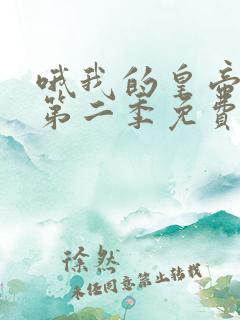 哦我的皇帝
第二季免費
徐然
未经同意禁止转载